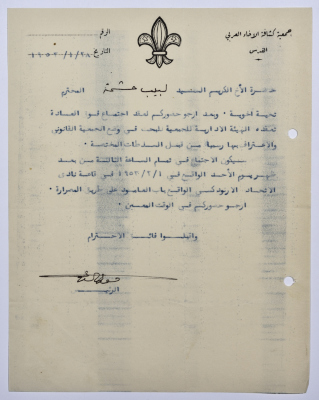 جمعية كشافة الاتحاد العربي
القدس
الرقم
التاريخ ١٩٥٣/١/٢٨
حضرة الأخ الكريم السيد لبيب حشمة المحترم
تحية اخوية ، وبعد ارجو حضوركم لعقد اجتماع فوق العادة
تعقده الهيئة الادارية للجمعية للبحث في وضع الجمعية القانوني
والاعتراف بها رسميا من قبل السلطات المختصة .
سيكون الاجتماع في تمام الساعة الثالثة من بعد
ظهر يوم الأحد الواقع في ١٩٥٣/٢/١ في قاعة نادي
الاتحاد الارثوذكسي الواقع بباب العامود على طريق المصرارة .
ارجو حضوركم في الوقت المعين .
واقبلوا فائق الاحترام
الرئيس